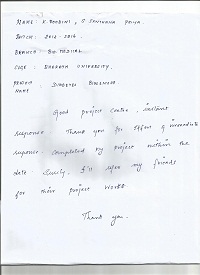 NAME: K. ROOBINI, G. SANTHANA PRIYA.
BATCH: 2012-2016.
BRANCH: BIO MEDICAL.
COLLEGE: BHARATH UNIVERSITY.
PROJECT
NAME: DIABETES
Good project centre, instant
response. Thank you for effort & immediate
response. Completed my project within the
date. Surely I'll refer my friends
for their project works.
Thank you.